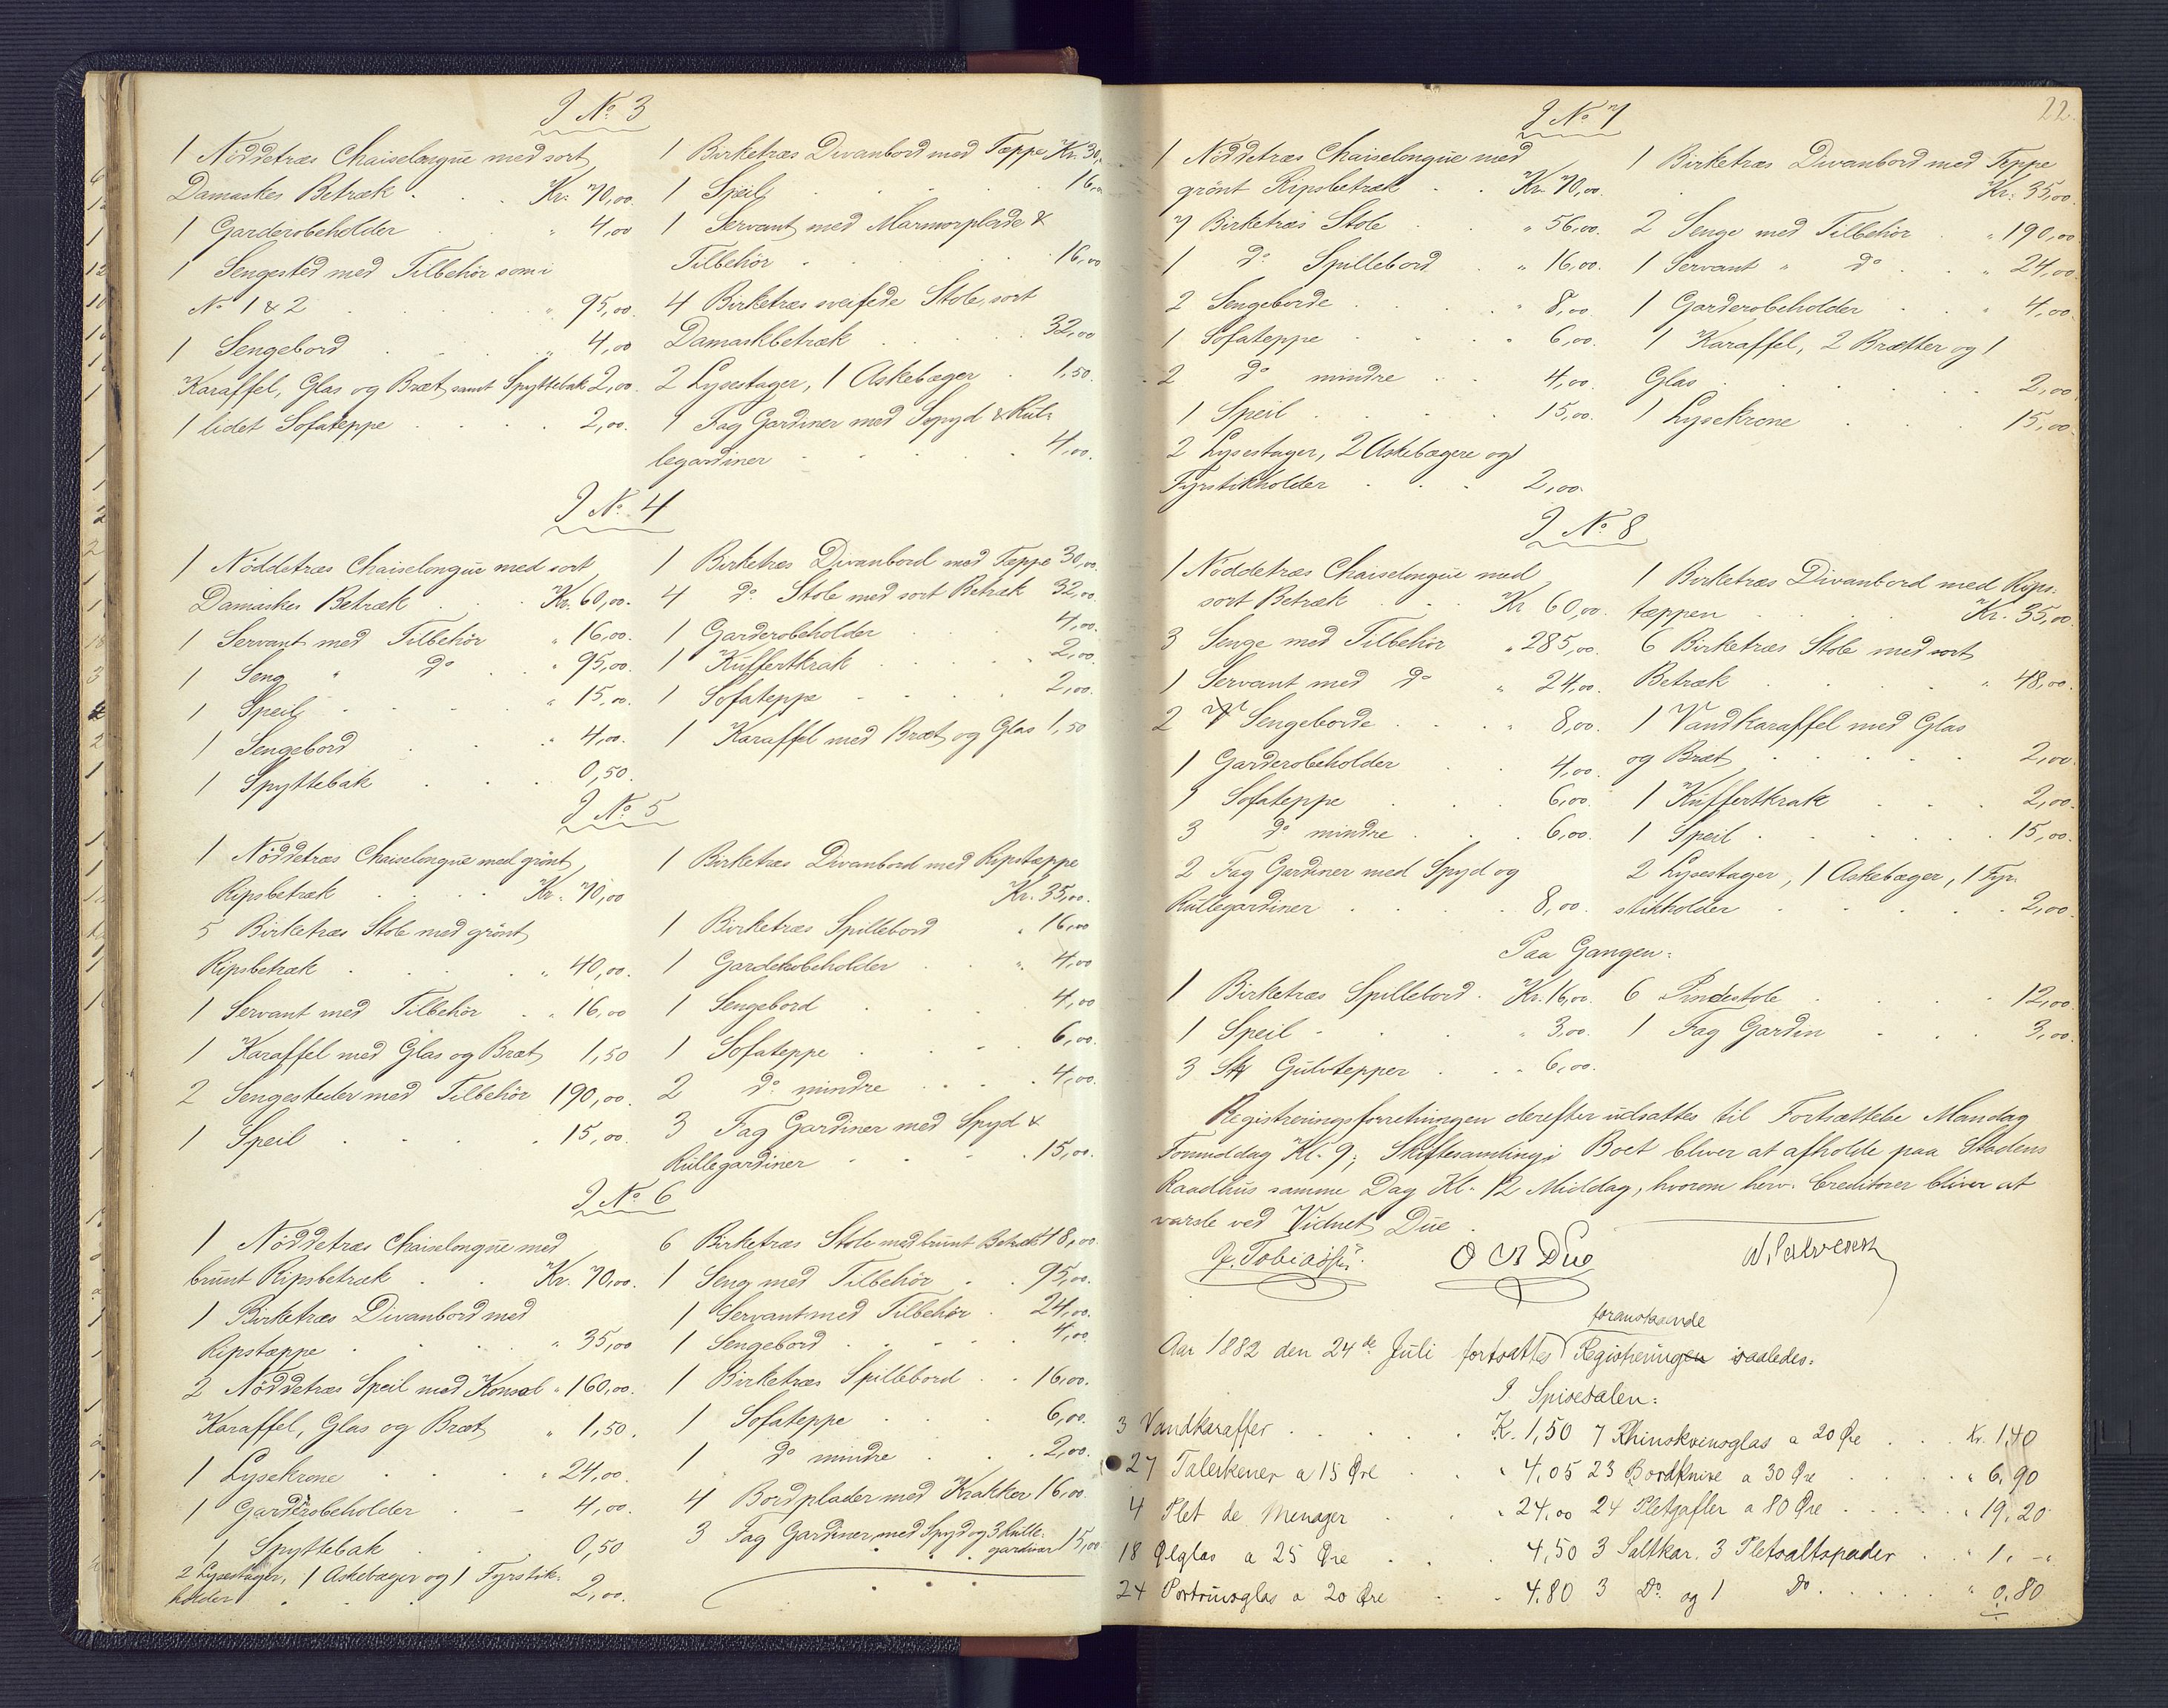 I No 3
1 Nöddetræs Chaiselongue med sort
Damaskes Betræk . . . Kr: 70,00.
1 Garderobeholder . . " 4,00
1 Sengested med Tilbehör som i
No 1 & 2 . . . " 95,00.
1 Sengebord . . . " 4,00
Karaffel, Glas og Bræt samt Spyttebak 2,00.
1 lidet Sofateppe . . . 2,00.
1 Birketræs Divanbord med Tæppe Kr. 30,
1 Speil . . . . 16,00
1 Servant med Marmorplade &
Tilbehör . . . . 16,00
4 Birketræs sveifede Stole, sort
Damaskbetræk . . . 32,00
2 Lysestager, 1 Askebæger . 1,50.
1 Fag Gardiner med Spyd & Rul-
legardiner . . . . 4,00.
I No 4
1 Nöddetræs Chaiselongue med sort
Damaskes Betræk . . Kr. 60,00.
1 Servant med Tilbehör " 16,00.
1 Seng " Do . " 95,00.
1 Speil . . . " 15,00
1 Sengebord . . " 4,00.
1 Spyttebak . . . 0,50.
1 Birketræs Divanbord med Tæppe 30,00.
4 Do Stole med sort Betræk 32,00.
1 Garderobeholder . . 4,00.
1 Kuffertkrak . . . 2,00.
1 Sofateppe . . . 2,00.
1 Karaffel med Bræt og Glas 1,50
I No 5
1 Nöddetræs Chaiselongue med grönt
Ripsbetræk . . . Kr. 70,00
5 Birketræs Stole med grönt
Ripsbetræk . . . " 40,00.
1 Servant med Tilbehör . " 16,00
1 Karaffel med Glas og Bræt 1,50
2 Sengesteder med Tilbehör 190,00.
1 Speil . . . . 15,00.
1 Birketræs Divanbord med Ripstæppe
Kr. 35,00.
1 Birketræs Spillebord " 16,00
1 Garderobeholder . . " 4,00
1 Sengebord . . . 4,00
1 Sofateppe . . . 6,00.
2 Do mindre . . . 4,00.
3 Fag Gardiner med Spyd &
Rullegardiner . . . 15,00.
I No 6
1 Nöddetræs Chaiselongue med
brunt Ripsbetræk . . Kr. 70,00.
1 Birketræs Divanbord med
Ripstæppe . . . " 35,00
2 Nöddetræs Speil med Konsol " 160,00.
Karaffel, Glas og Bræt " 1,50.
1 Lysekrone . . " 24,00.
1 Garderobeholder . - 4,00.
1 Spyttebak . . 0,50
2 Lysestager, 1 Askebæger og 1 Fyrstik-
holder . . . . 2,00.
6 Birketræs Stole med brunt Betræk 48,00.
1 Seng med Tilbehör . . 95,00.
1 Servant med Tilbehör . 24,00.
1 Sengebord . . . 4,00.
1 Birketræs Spillebord . . 16,00.
1 Sofateppe . . . 6,00.
1 Do mindre . . . 2,00.
4 Bordplader med Krakker 16,00.
3 Fag Gardiner med Spyd og 3 Rulle-
gardiner 15,00
22.
I No 7
1 Nöddetræs Chaiselongue med
grönt Ripsbetræk . . Kr. 70,00.
7 Birketræs Stole . . " 56,00.
1 Do Spillebord . " 16,00.
2 Sengeborde . . " 8,00.
1 Sofateppe . . " 6,00.
2 Do mindre . . 4,00.
1 Speil . . . . 15,00.
2 Lysestager, 2 Askebægere og
Fyrstikholder . . . 2,00.
1 Birketræs Divanbord med Teppe
Kr: 35,00.
2 Senge med Tilbehör . " 190,00
1 Servant " Do . . " 24,00
1 Garderobeholder . . " 4,00.
1 Karaffel, 2 Brætter og 1
Glas . . . . 2,00.
1 Lysekrone . . . 15,00.
I No 8
1 Nöddetræs Chaiselongue med
sort Betræk . . . Kr 60,00.
3 Senge med Tilbehör " 285,00.
1 Servant med Do " 24,00.
2 Sengeborde . . " 8,00.
1 Garderobeholder . . 4,00.
1 Sofateppe . . . 6,00.
3 Do mindre . . . 6,00.
2 Fag Gardiner med Spyd og
Rullegardiner . . . 8,00.
1 Birketræs Divanbord med Rips-
tæppen . . . Kr. 35,00.
6 Birketræs Stole med sort
Betræk . . . . " 48,00.
1 Vandkaraffel med Glas
og Bræt . . . . 2,00.
1 Kuffertkrak . . . 2,00.
1 Speil . . . . 15,00.
2 Lysestager, 1 Askebæger, 1 Fyr-
stikholder . . . . 2,00.
Paa Gangen:
1 Birketræs Spillebord . Kr. 16,00.
1 Speil - . . . " 3,00.
3 Stk Gulvtepper . . " 6,00.
6 Pindestole . . . 12,00.
1 Fag Gardin - . . 3,00.
Registreringsforretningen derefter udsattes til Fortsættelse Mandag
Formiddag Kl. 9; Skiftesamling i Boet bliver at afholde paa Stadens
Raadhus samme Dag Kl. 12 Middag, hvorom herv. Creditorer bliver at
varsle ved Vidnet Due.
J. Tobiassen.
O Due
foranstaaende
Aar 1882 den 24de Juli fortsattes Registreringen saaledes:
I Spisesalen:
3 Vandkaraffer . . . . . K. 1,50
27 Talerkener a 15 Øre . . " 4,05
4 Plet de Menager . . " 24,00
18 Ølglas a 25 Øre . . . 4,50
24 Portvinsglas a 20 Øre . . 4,80
7 Rhinskvinsglas a 20 Øre . . . Kr. 1,40
23 Bordknive a 30 Øre . . . . " 6,90
24 Pletgafler a 80 Øre . . . . . " 19,20
3 Saltkar. 3 Pletsaltspader . . " 1, - "
3 Do og 1 Do . . . . . " 0,80